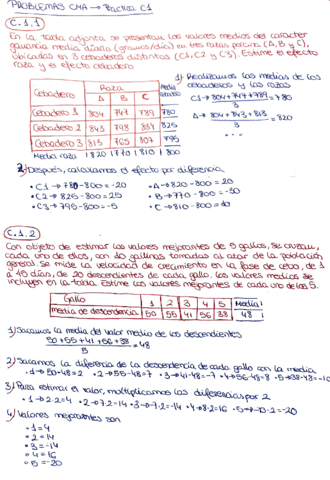 PROBLEMAS CMA → Bactica C1
C.1.1
En la tabla adjunta se presentan los valores medios del caracter
ganancia media diaria (gramos/día) en tres razas porcina (A, B y C),
ubicadas en 3 cebaderos distintos (C1, C2 y C3). Estime el efecto
raza y el efecto cebadero
1) Realizamos las medias de los
cebaderos y las razas
Cebadero Raza Media
A B C
Cebadero 1 804 747 789 780
Cebadero 2 843 798 834 825
Cebadero 3 813 765 807 795
Media raza 820 770 810 800
C1 → 804+747+789 = 780
3
A → 804+843+813 = 820
3
...
2) Después, calculamos el efecto que hay
• C1 → 780-800 = -20 • A → 820-800 = 20
• C2 → 825-800 = 25 • B → 770-800 = -30
• C3 → 795-800 = -5 • C → 810-800 = 10
C.1.2
Con objeto de estimar los valores mejorantes de 5 gallos, se cruzan,
cada uno de ellos, con 10 gallinas tomadas al azar de la población
general. Se mide la velocidad de crecimiento en la fase de cebo, de 1
a 45 días, de 20 descendientes de cada gallo. Los valores medios se
incluyen en la tabla. Estime los valores mejorantes de cada uno de los 5.
Gallo 1 2 3 4 5 Media
media de descendencia 50 55 41 56 38 48
1) Sacamos la media del valor medio de los descendientes
50+55+41+56+38 = 48
5
2) Sacamos la diferencia de la descendencia de cada gallo con la media
• 1 → 50-48 = 2 • 2 → 55-48 = 7 • 3 → 41-48 = -7 • 4 → 56-48 = 8 • 5 → 38-48 = -10
3) Para estimar el valor, multiplicamos las diferencias por 2
• 1 → 2·2 = 4 • 2 → 7·2 = 14 • 3 → -7·2 = -14 • 4 → 8·2 = 16 • 5 → -10·2 = -20
4) Valores mejorantes son
• 1 = 4
• 2 = 14
• 3 = -14
• 4 = 16
• 5 = -20